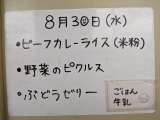 8月30日(水)
・ビーフカレーライス(米粉)
・野菜のピクルス
・ぶどうゼリー
ごはん
牛乳